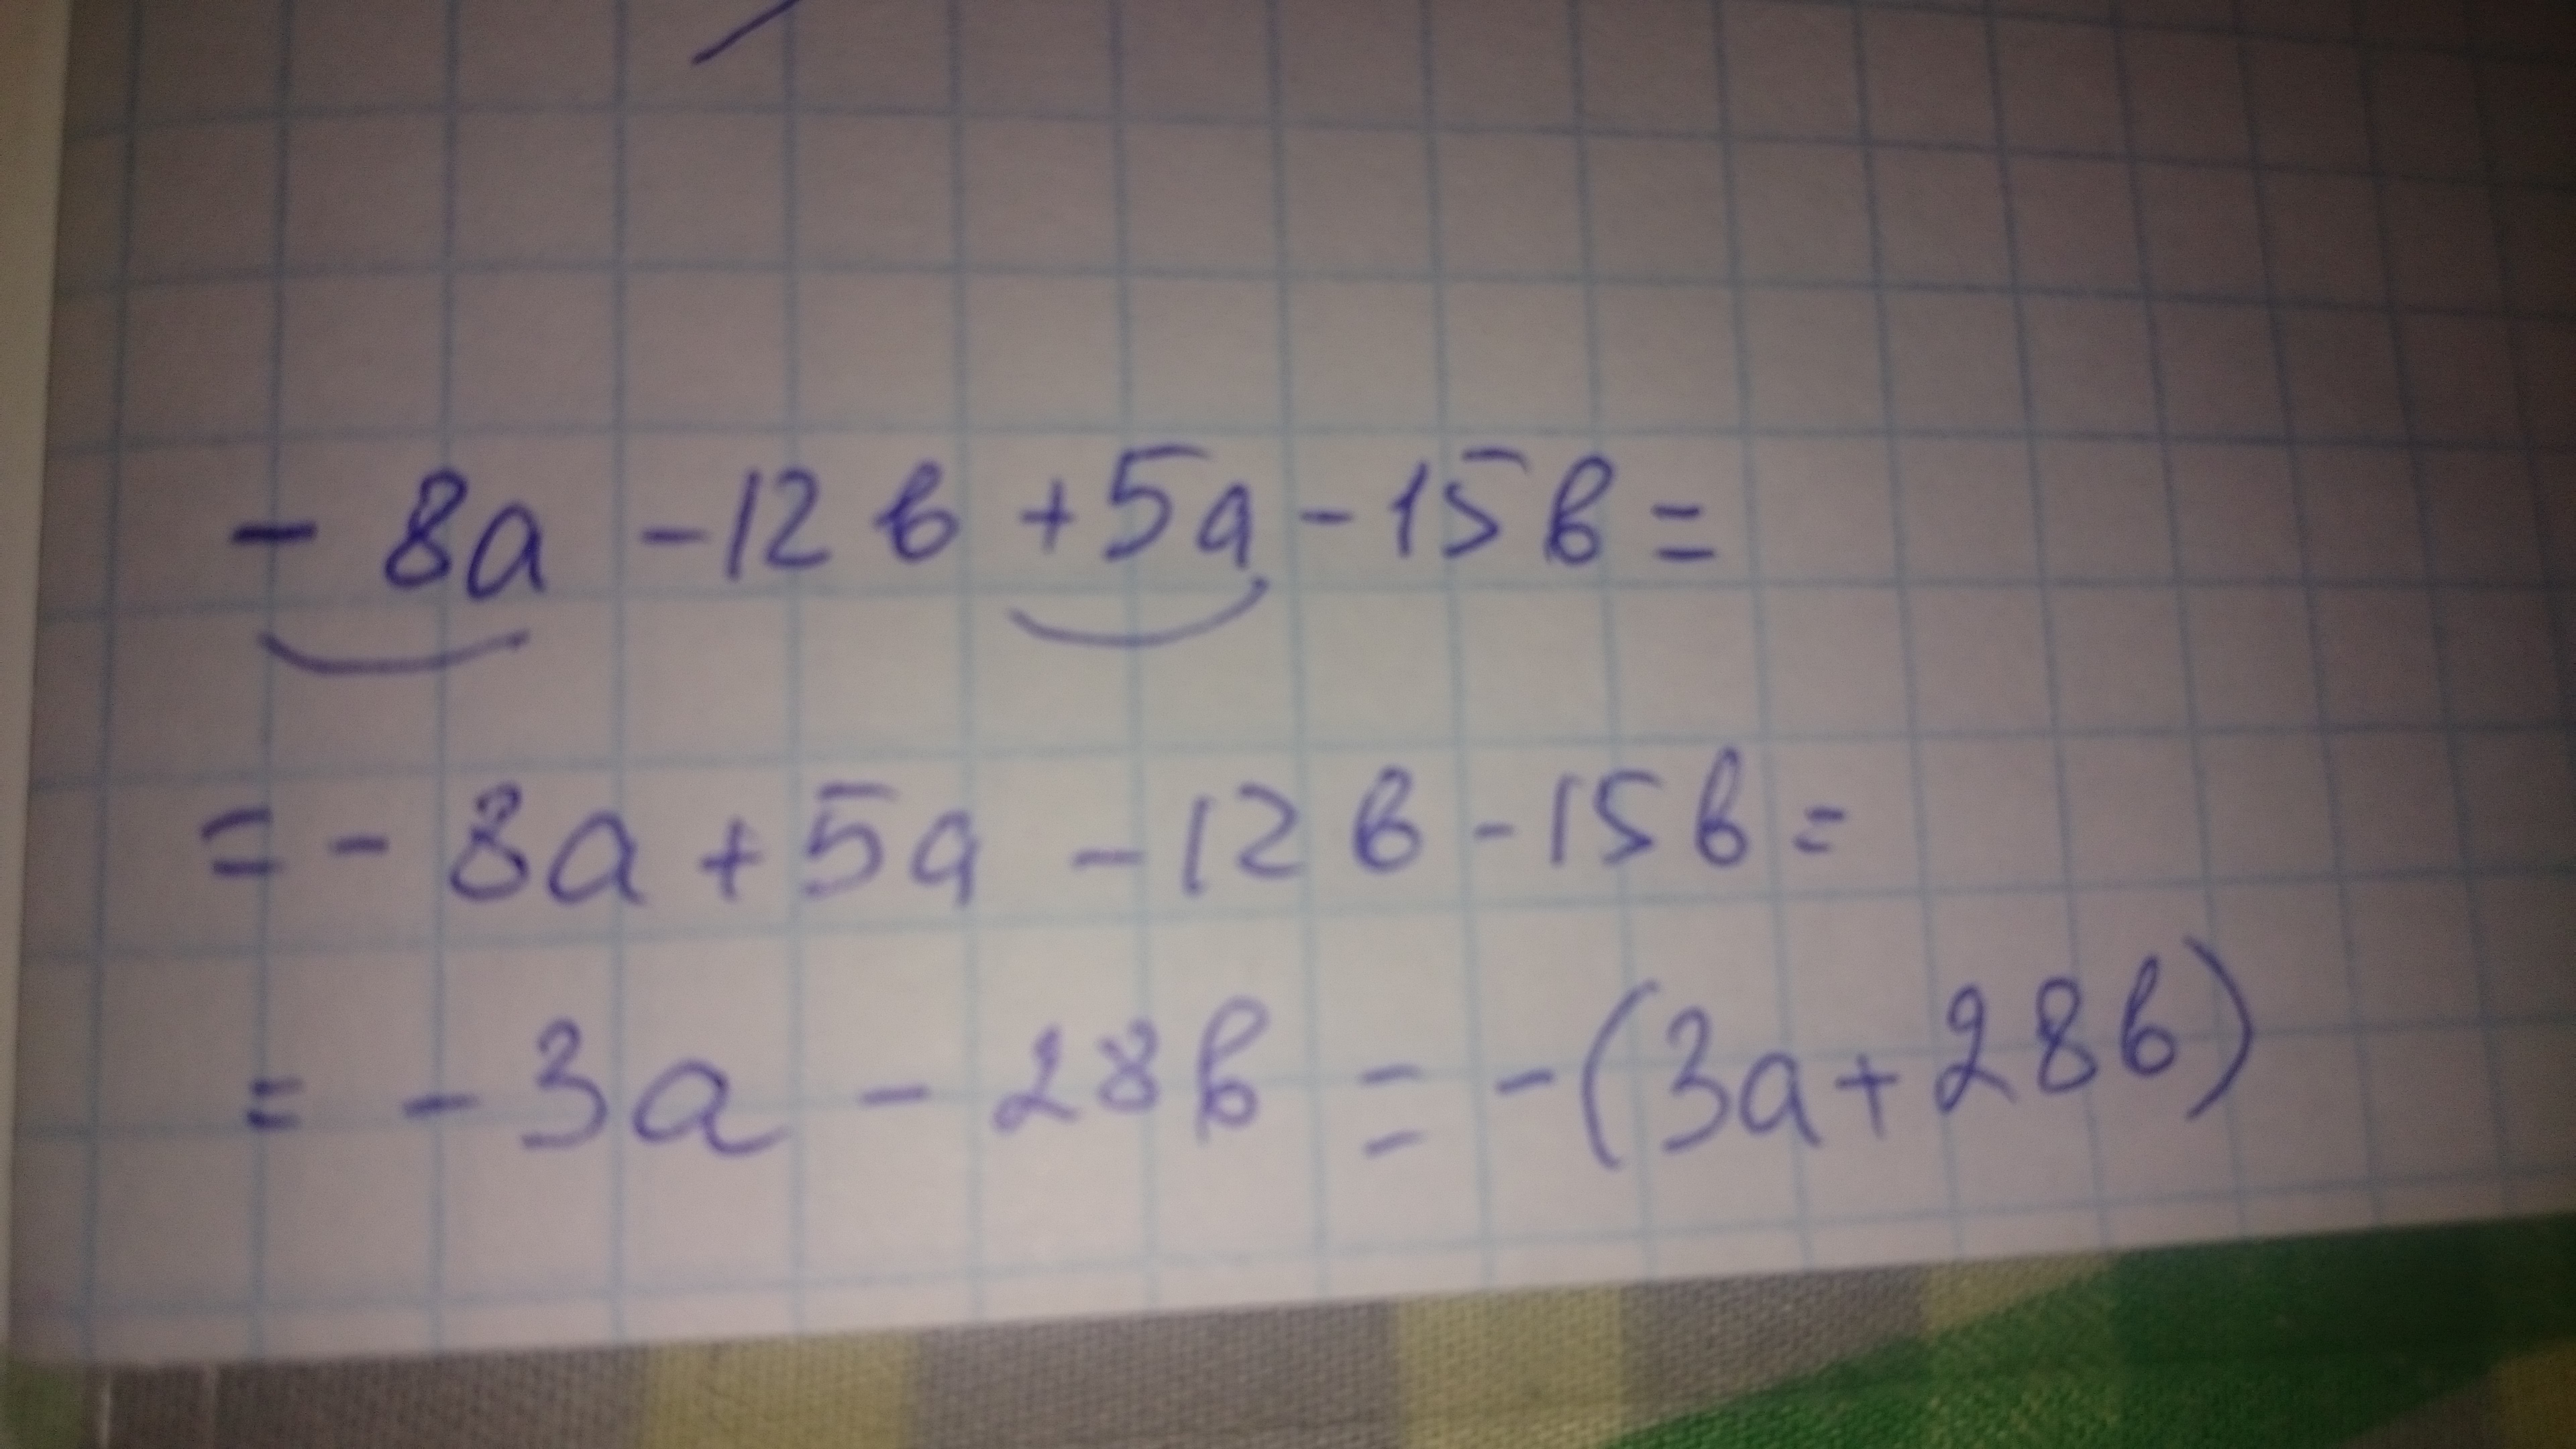 - 8a - 12в + 5a - 15в =
= - 8a + 5a - 12в - 15в =
= - 3a - 28в = - (3a + 28в)